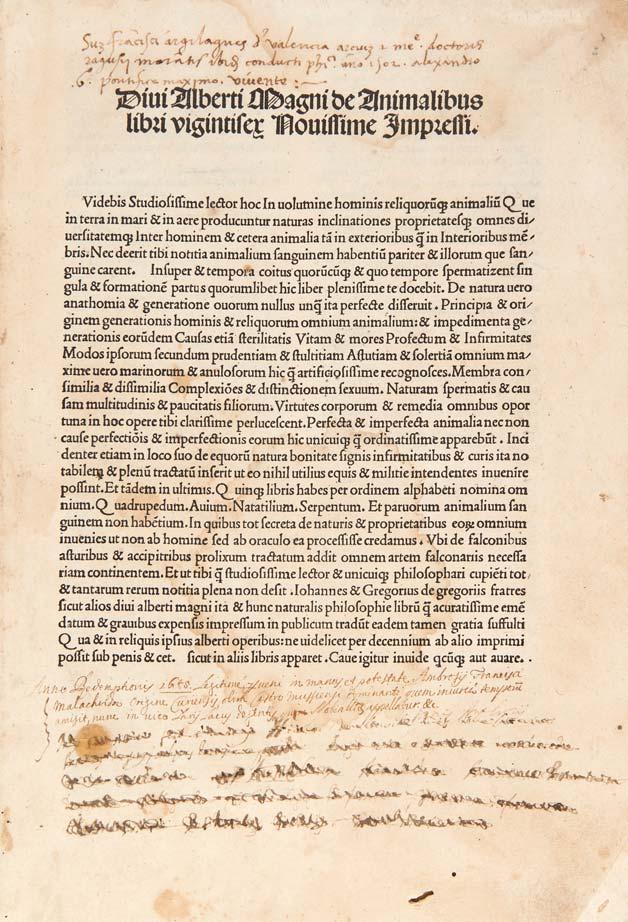 Suz francisci argilagnes d' valencia arciuz 2 me. doctoris
ragusij moralis ibidz conducti phi. ano 1502. alexandro
6. pontifice maximo. vivente:
Diui Alberti Magni de Animalibus
libri vigintisex Nouissime Impressi.
Videbis Studiosissime lector hoc In uolumine hominis reliquorūqꝫ animaliū Que
in terra in mari & in aere producuntur naturas inclinationes proprietatesqꝫ omnes di/
uersitatemqꝫ Inter hominem & cetera animalia tā in exterioribus q̄ in Interioribus mē/
bris. Nec deerit tibi notitia animalium sanguinem habentiū pariter & illorum que san/
guine carent. Insuper & tempora coitus quorūcūqꝫ & quo tempore spermatizent sin
gula & formationē partus quorumlibet hic liber plenissime te docebit. De natura uero
anathomia & generatione ouorum nullus unq̄ ita perfecte disseruit. Principia & ori/
ginem generationis hominis & reliquorum omnium animalium: & impedimenta ge/
nerationis eorūdem Causas etiā sterilitatis Vitam & mores Profectum & Infirmitates
Modos ipsorum secundum prudentiam & stultitiam Astutiam & solertiā omnium ma/
xime uero marinorum & anulosorum hic q̄ artificiosissime recognosces. Membra con/
similia & dissimilia Complexiōes & distinctionem sexuum. Naturam spermatis & cau
sam multitudinis & paucitatis filiorum. Virtutes corporum & remedia omnibus opor
tuna in hoc opere tibi clarissime perlucescent. Perfecta & imperfecta animalia nec non
cause perfectiōis & imperfectionis eorum hic unicuiqꝫ q̄ ordinatissime apparebūt. Inci
denter etiam in loco suo de equorū natura bonitate signis infirmitatibus & curis ita no
tabilem & plenū tractatū inserit ut eo nihil utilius equis & militie intendentes inuenire
possint. Et tādem in ultimis. Quinqꝫ libris habes per ordinem alphabeti nomina om
nium. Quadrupedum. Auium. Natatilium. Serpentum. Et paruorum animalium san
guinem non habētium. In quibus tot secreta de naturis & proprietatibus eoꝝ omnium
inuenies ut non ab homine sed ab oraculo ea processisse credamus. Vbi de falconibus
asturibus & accipitribus prolixum tractatum addit omnem artem falconariis necessa
riam continentem. Et ut tibi q̄ studiosissime lector & unicuiqꝫ philosophari cupiēti tot/
& tantarum rerum notitia plena non desit. Iohannes & Gregorius de gregoriis fratres
sicut alios diui alberti magni ita & hunc naturalis philosophie librū q̄ acuratissime emē
datum & grauibus expensis impressum in publicum tradūt eadem tamen gratia suffulti
Qua & in reliquis ipsius alberti operibus: ne uidelicet per decennium ab alio imprimi
possit sub penis & cet. sicut in aliis libris apparet. Caue igitur inuide qcūqꝫ aut auare.
Anno Redemptionis 1688. legitime deueni in manus et potestate Ambrosij Francisci
Malachridae origine
amisit, nunc in vico appellatur. &c.